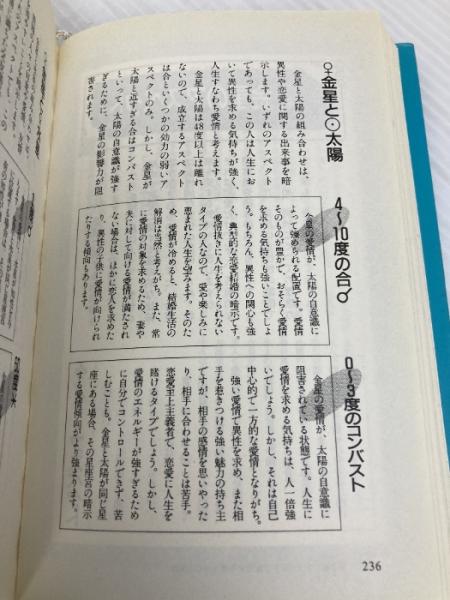 ♀金星と☉太陽
金星と太陽の組み合わせは、
異性や恋愛に関する出来事を暗
示します。いずれのアスペクト
であっても、この人は人生にお
いて異性を求める気持ちが強く、
人生すなわち愛情と考えます。
金星と太陽は48度以上は離れ
ないので、成立するアスペクト
は合といくつかの効力の弱いア
スペクトのみ。しかし、金星が
太陽と近すぎる合はコンバスト
といって、太陽の自意識が強す
ぎるために、金星の影響力が阻
害されます。
4〜10度の合☌
金星の愛情が、太陽の自意識に
よって強められる配置です。愛情
そのものが豊かで、おそらく愛情
を求める気持ちも強いことでしょ
う。もちろん、異性への関心も強
く、典型的な恋愛結婚の暗示です。
愛情抜きに人生を考えられない
タイプの人なので、愛や楽しみに
恵まれた人生を望みます。そのた
め、愛情が冷めると、結婚生活の
解消は当然と考えがち。また、常
に愛情の対象を求めるため、妻や
夫に対して向ける愛情が満たされ
ない場合は、ほかに恋人を求めた
り、異性の子供に愛情が向けられ
たりする傾向もあります。
0〜3度のコンバスト
金星の愛情が、太陽の自意識に
阻害されている状態です。人生に
愛情を求める気持ちは、人一倍強
いでしょう。しかし、それは自己
中心的で一方的な愛情となりがち。
強い愛情で異性を求め、また相
手を惹きつける強い魅力の持ち主
ですが、相手の感情を思いやった
り、相手に合わせることは苦手。
恋愛至上主義者で、恋愛に人生を
賭けるタイプでしょう。しかし、
愛情のエネルギーが強すぎるため
に自分でコントロールできず、苦
しむことも。金星と太陽が同じ星
座にある場合、その星座宮の暗示
する愛情傾向がより強まります。
236